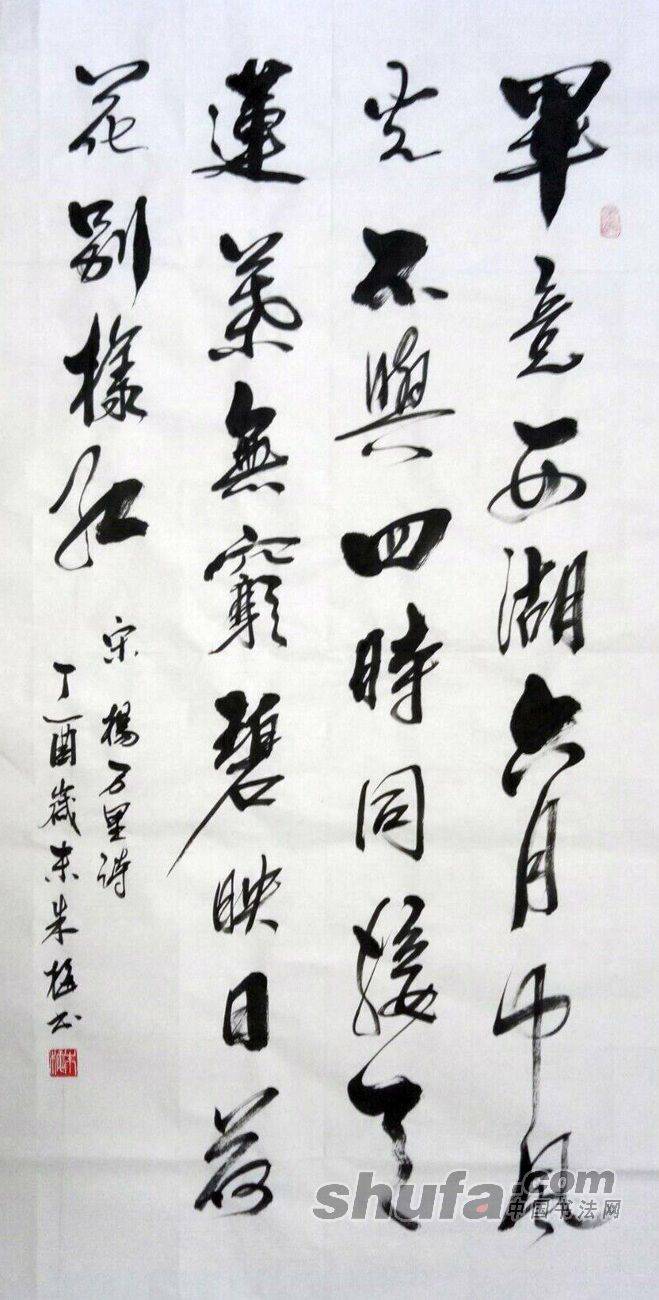 畢竟西湖六月中風
光不與四時同接天
蓮葉無窮碧映日荷
花别樣紅
宋楊万里詩
丁酉歲末朱
shufa.com
中国书法网